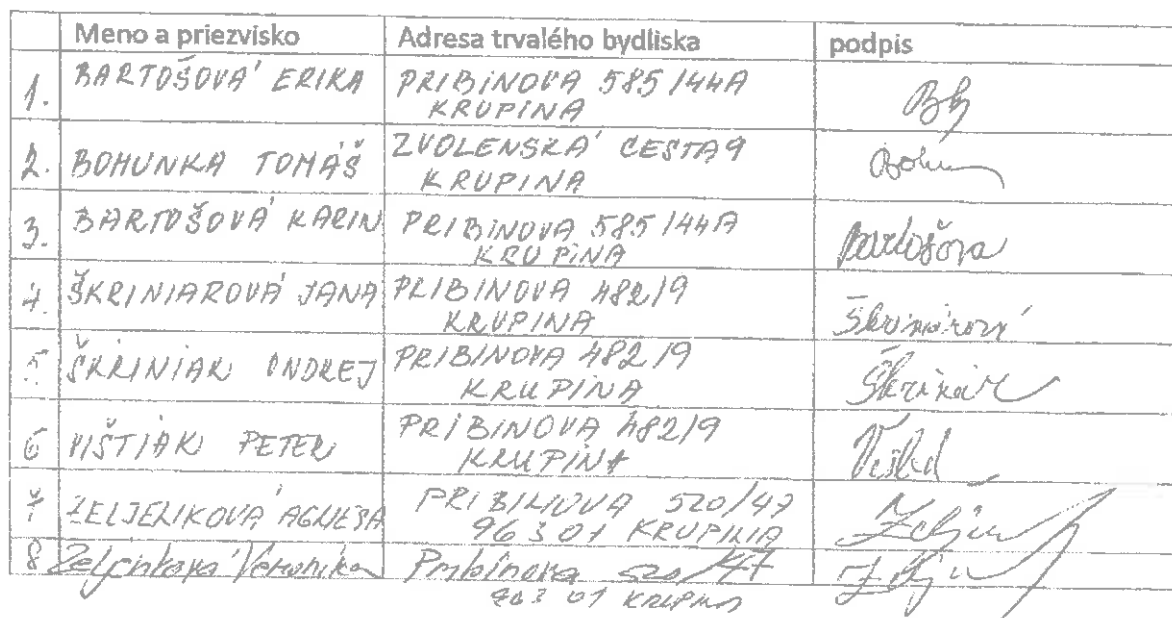 Meno a priezvisko Adresa trvalého bydliska podpis
1. BARTOŠOVÁ ERIKA PRIBINOVA 585/44A
KRUPINA
2. BOHUNKA TOMÁŠ ZVOLENSKÁ CESTA 9
KRUPINA
3. BARTOŠOVÁ KARIN PRIBINOVA 585/44A Bartošova
KRUPINA
4. ŠKRINIAROVÁ JANA PRIBINOVA 482/9 Škriniarová
KRUPINA
5 ŠKRINIAR ONDREJ PRIBINOVA 482/9 Škriniar
KRUPINA
6 VIŠTIAK PETER PRIBINOVA 482/9
KRUPINA
7 AGNESA PRIBINOVA 520/47
963 01 KRUPINA
8 Veronika Pribinova 520/47
963 01 KRUPINA